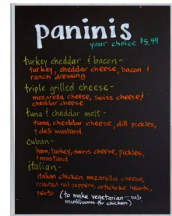 paninis
your choice $5.99
turkey cheddar & bacon -
turkey, cheddar cheese, bacon &
ranch dressing
triple grilled cheese -
mozarella cheese, swiss cheese &
cheddar cheese
tuna & cheddar melt -
tuna, cheddar cheese, dill pickles,
& deli mustard
cuban -
ham, turkey, swiss cheese, pickles,
& mustard
italian -
italian chicken, mozarella cheese,
roasted red peppers, artichoke hearts,
pesto (to make vegetarian - sub
mushrooms for chicken)